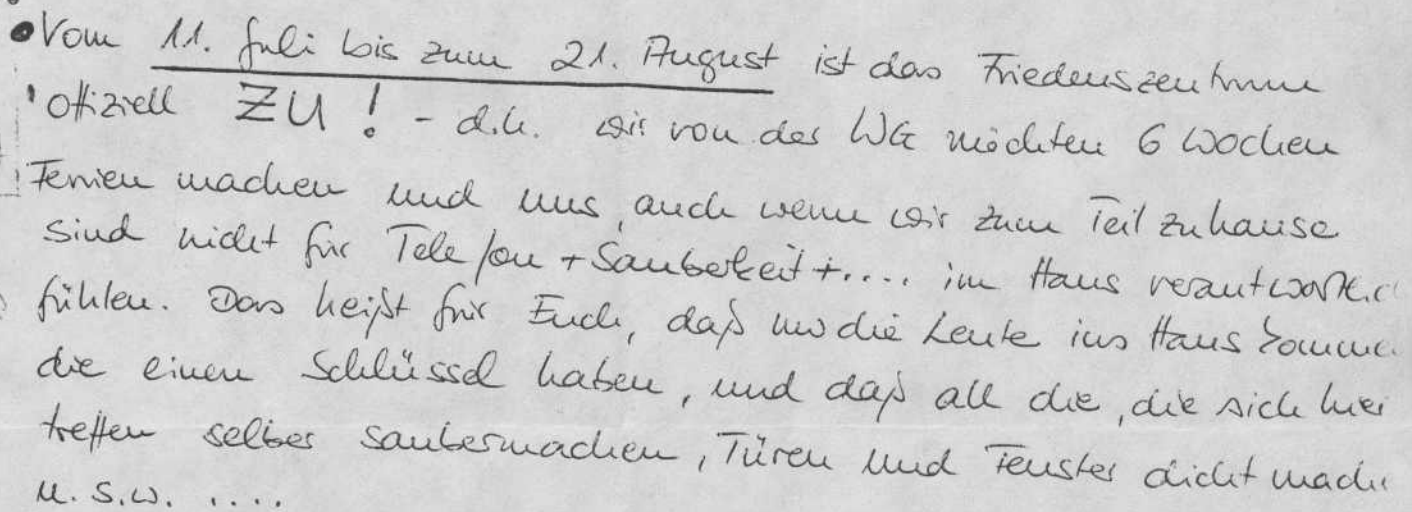 • Vom 11. Juli bis zum 21. August ist das Friedenszentrum
offiziell ZU! - d.h. wir von der WG möchten 6 Wochen
Ferien machen und uns, auch wenn wir zum Teil zuhause
sind nicht für Telefon + Sauberkeit + .... im Haus verantwortlic
fühlen. Das heißt für Euch, daß nur die Leute ins Haus komme
die einen Schlüssel haben, und daß all die, die sich hier
treffen selber saubermachen, Türen und Fenster dicht mache
u.s.w. ....